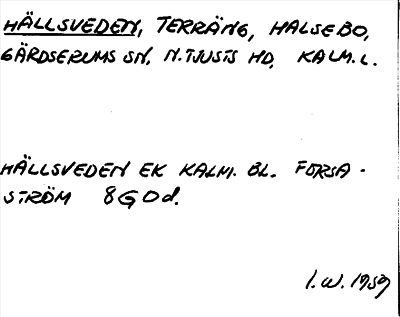 HÄLLSVEDEN, TERRÄNG, HALSEBO,
GÄRDSERUMS SN, N. TJUSTS HD, KALM. L.
HÄLLSVEDEN EK KALM. BL. FORSA-
STRÖM 8G0d.
I.W. 1959